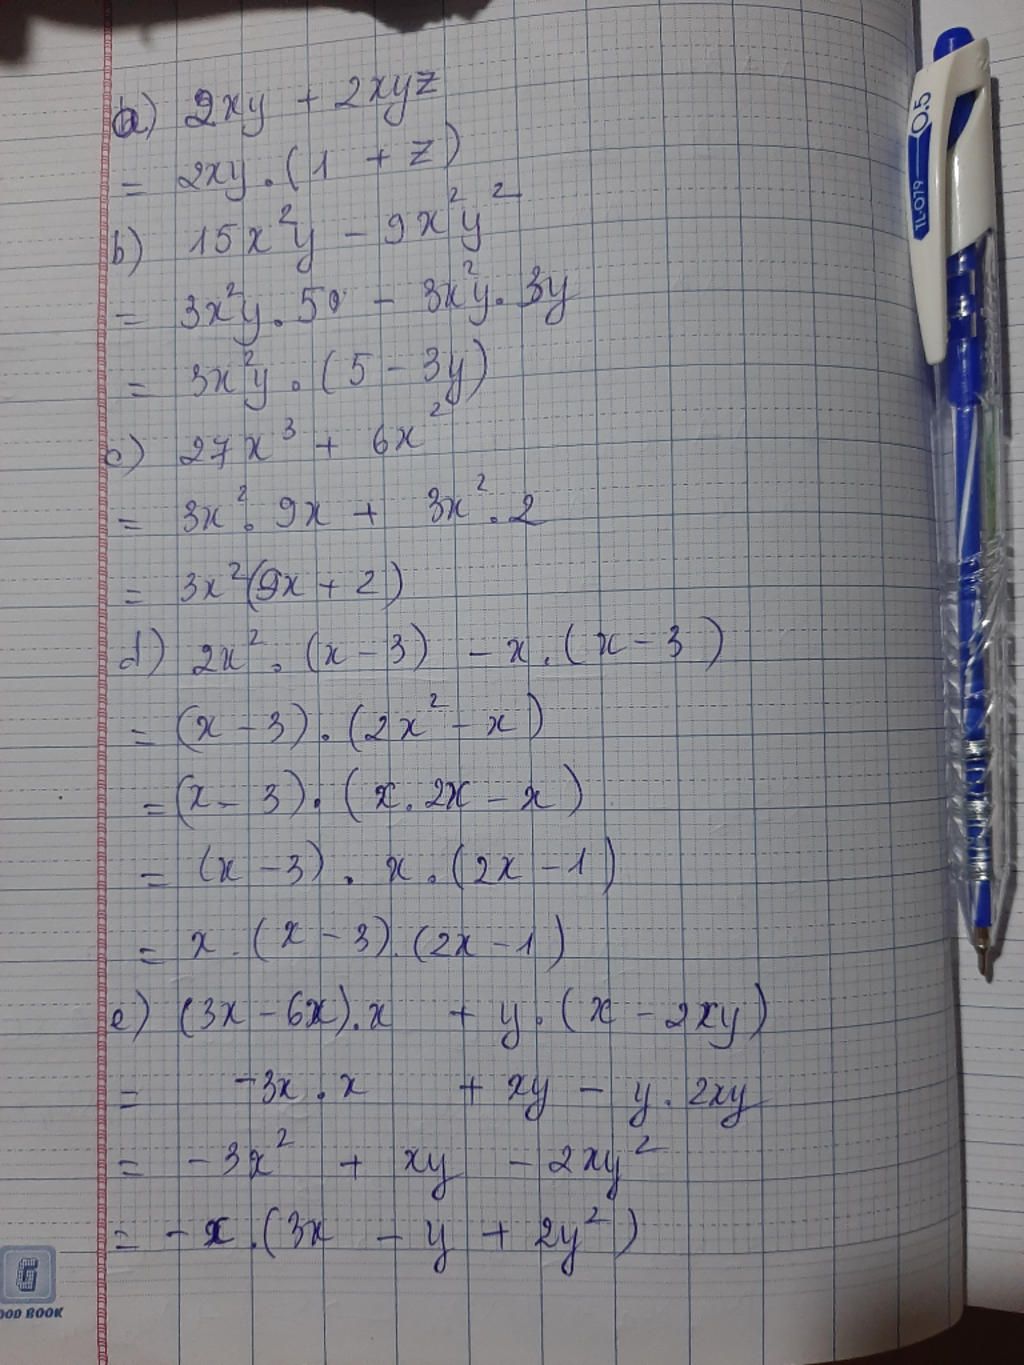 a) 2xy + 2xyz
= 2xy.(1 + z)
b) 15x²y - 9x²y²
= 3x²y.5 - 3x²y.3y
= 3x²y.(5 - 3y)
c) 27x³ + 6x²
= 3x².9x + 3x².2
= 3x²(9x + 2)
d) 2x².(x - 3) - x.(x - 3)
= (x - 3).(2x² - x)
= (x - 3).(x.2x - x)
= (x - 3).x.(2x - 1)
= x.(x - 3).(2x - 1)
e) (3x - 6x).x + y.(x - 2xy)
= -3x.x + xy - y.2xy
= -3x² + xy - 2xy²
= -x.(3x - y + 2y²)
G
OOD BOOK
TL-079 0.5